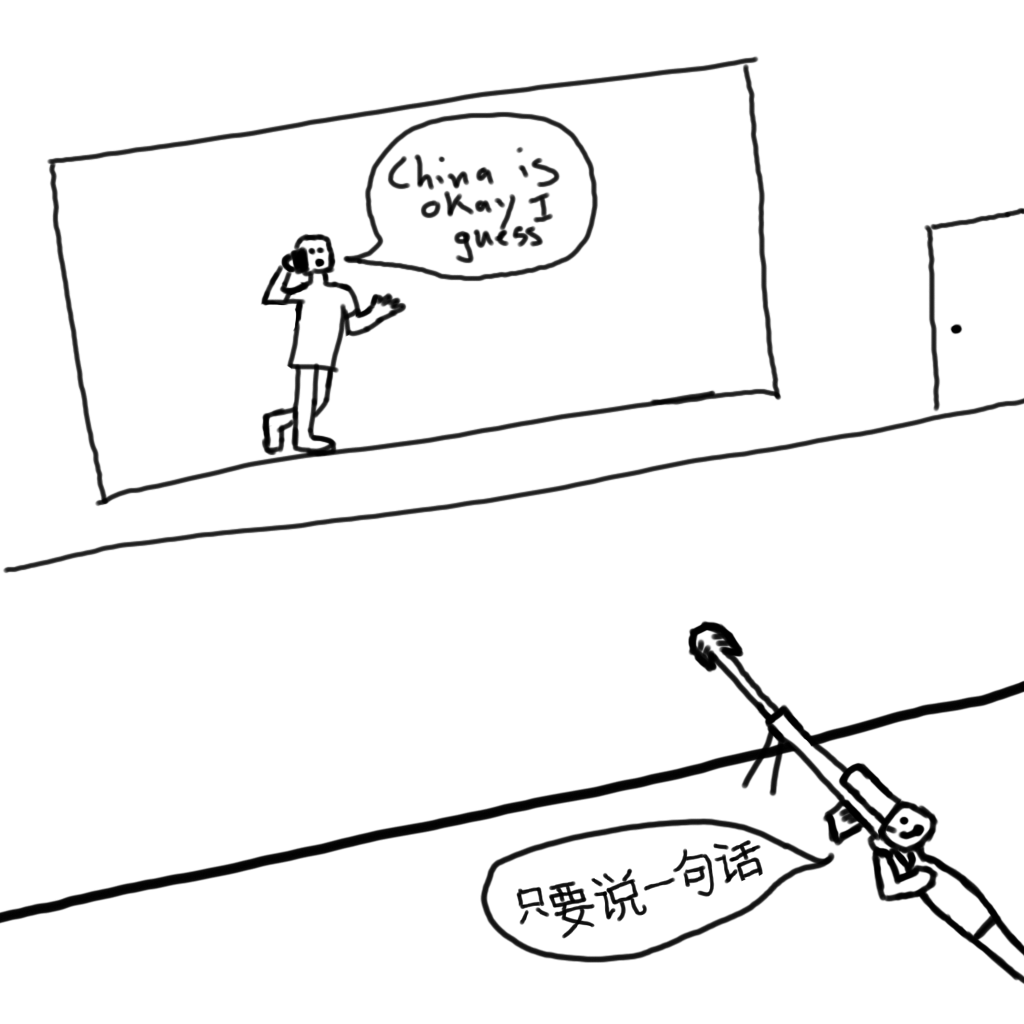 China is
okay I
guess
只要说一句话